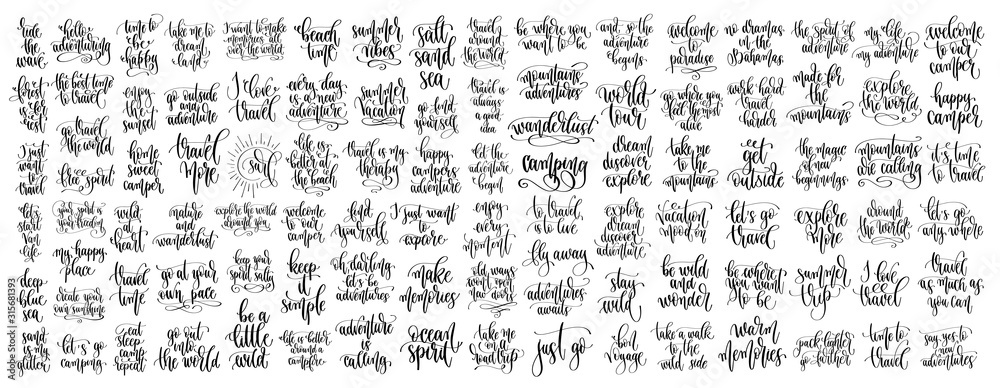 ride
the
wave
hello
adventuring
time to
be
happy
take me to
dream
land
I want to make
memories all
over the world
beach
time
summer
vibes
salt
sand
sea
travel
around
the
world
be where you
want to be
and so the
adventure
begins
welcome
to
paradise
no dramas
in the
Bahamas
the spirit of
adventure
my life
my adventure
welcome
to our
camper
first
rest
the best time
to travel
enjoy
the
sunset
go outside
and
adventure
I love
travel
every day
is a new
adventure
summer
vacation
go find
yourself
travel is
always
a good
idea
mountains
adventures
world
tour
go where you
feel the most
alive
work hard
travel
harder
made for
the
mountains
explore
the world
happy
camper
I just
want
to
travel
go travel
the world
free spirit
home
sweet
camper
travel
more
sail
life is
better at
the beach
travel is my
therapy
happy
campers
adventure
let the
adventure
begin
wanderlust
camping
dream
discover
explore
take me
to the
mountains
get
outside
the magic
of new
beginnings
mountains
are calling
it's time
to travel
let's
start
van
life
your spirit is
your freedom
my happy
place
wild
at
heart
nature
and
wanderlust
explore the world
around you
welcome
to our
camper
find
yourself
I just want
to
explore
enjoy
every
moment
to travel
is to live
fly away
explore
dream
discover
adventure
vacation
mood on
let's go
travel
explore
more
around
the
world
let's go
any where
deep
blue
sea
create your
own sunshine
travel
time
go at your
own pace
keep your
spirit salty
keep
it
simple
oh, darling
let's be
adventures
make
memories
old ways
won't open
new doors
adventures
awaits
stay
wild
be wild
and
wonder
be where
you want
to be
summer
trip
I love
travel
travel
as much as
you can
sand
is my
glitter
let's go
camping
eat
sleep
camp
repeat
go out
into
the world
be a
little
wild
life is better
around a
campfire
adventure
is
calling
ocean
spirit
take me
on a
road trip
just go
bon
voyage
take a walk
to the
wild side
warm
memories
pack lighter
go further
time to
travel
say yes to
new
adventures
Adobe Stock | #315681393